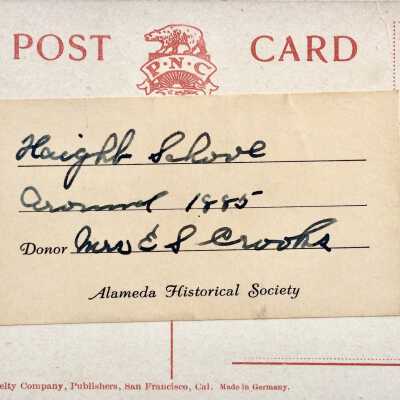 POST CARD
P·N·C
Haight School
Around 1885
Donor Mrs E S Crooks
Alameda Historical Society
elty Company, Publishers, San Francisco, Cal. Made in Germany.